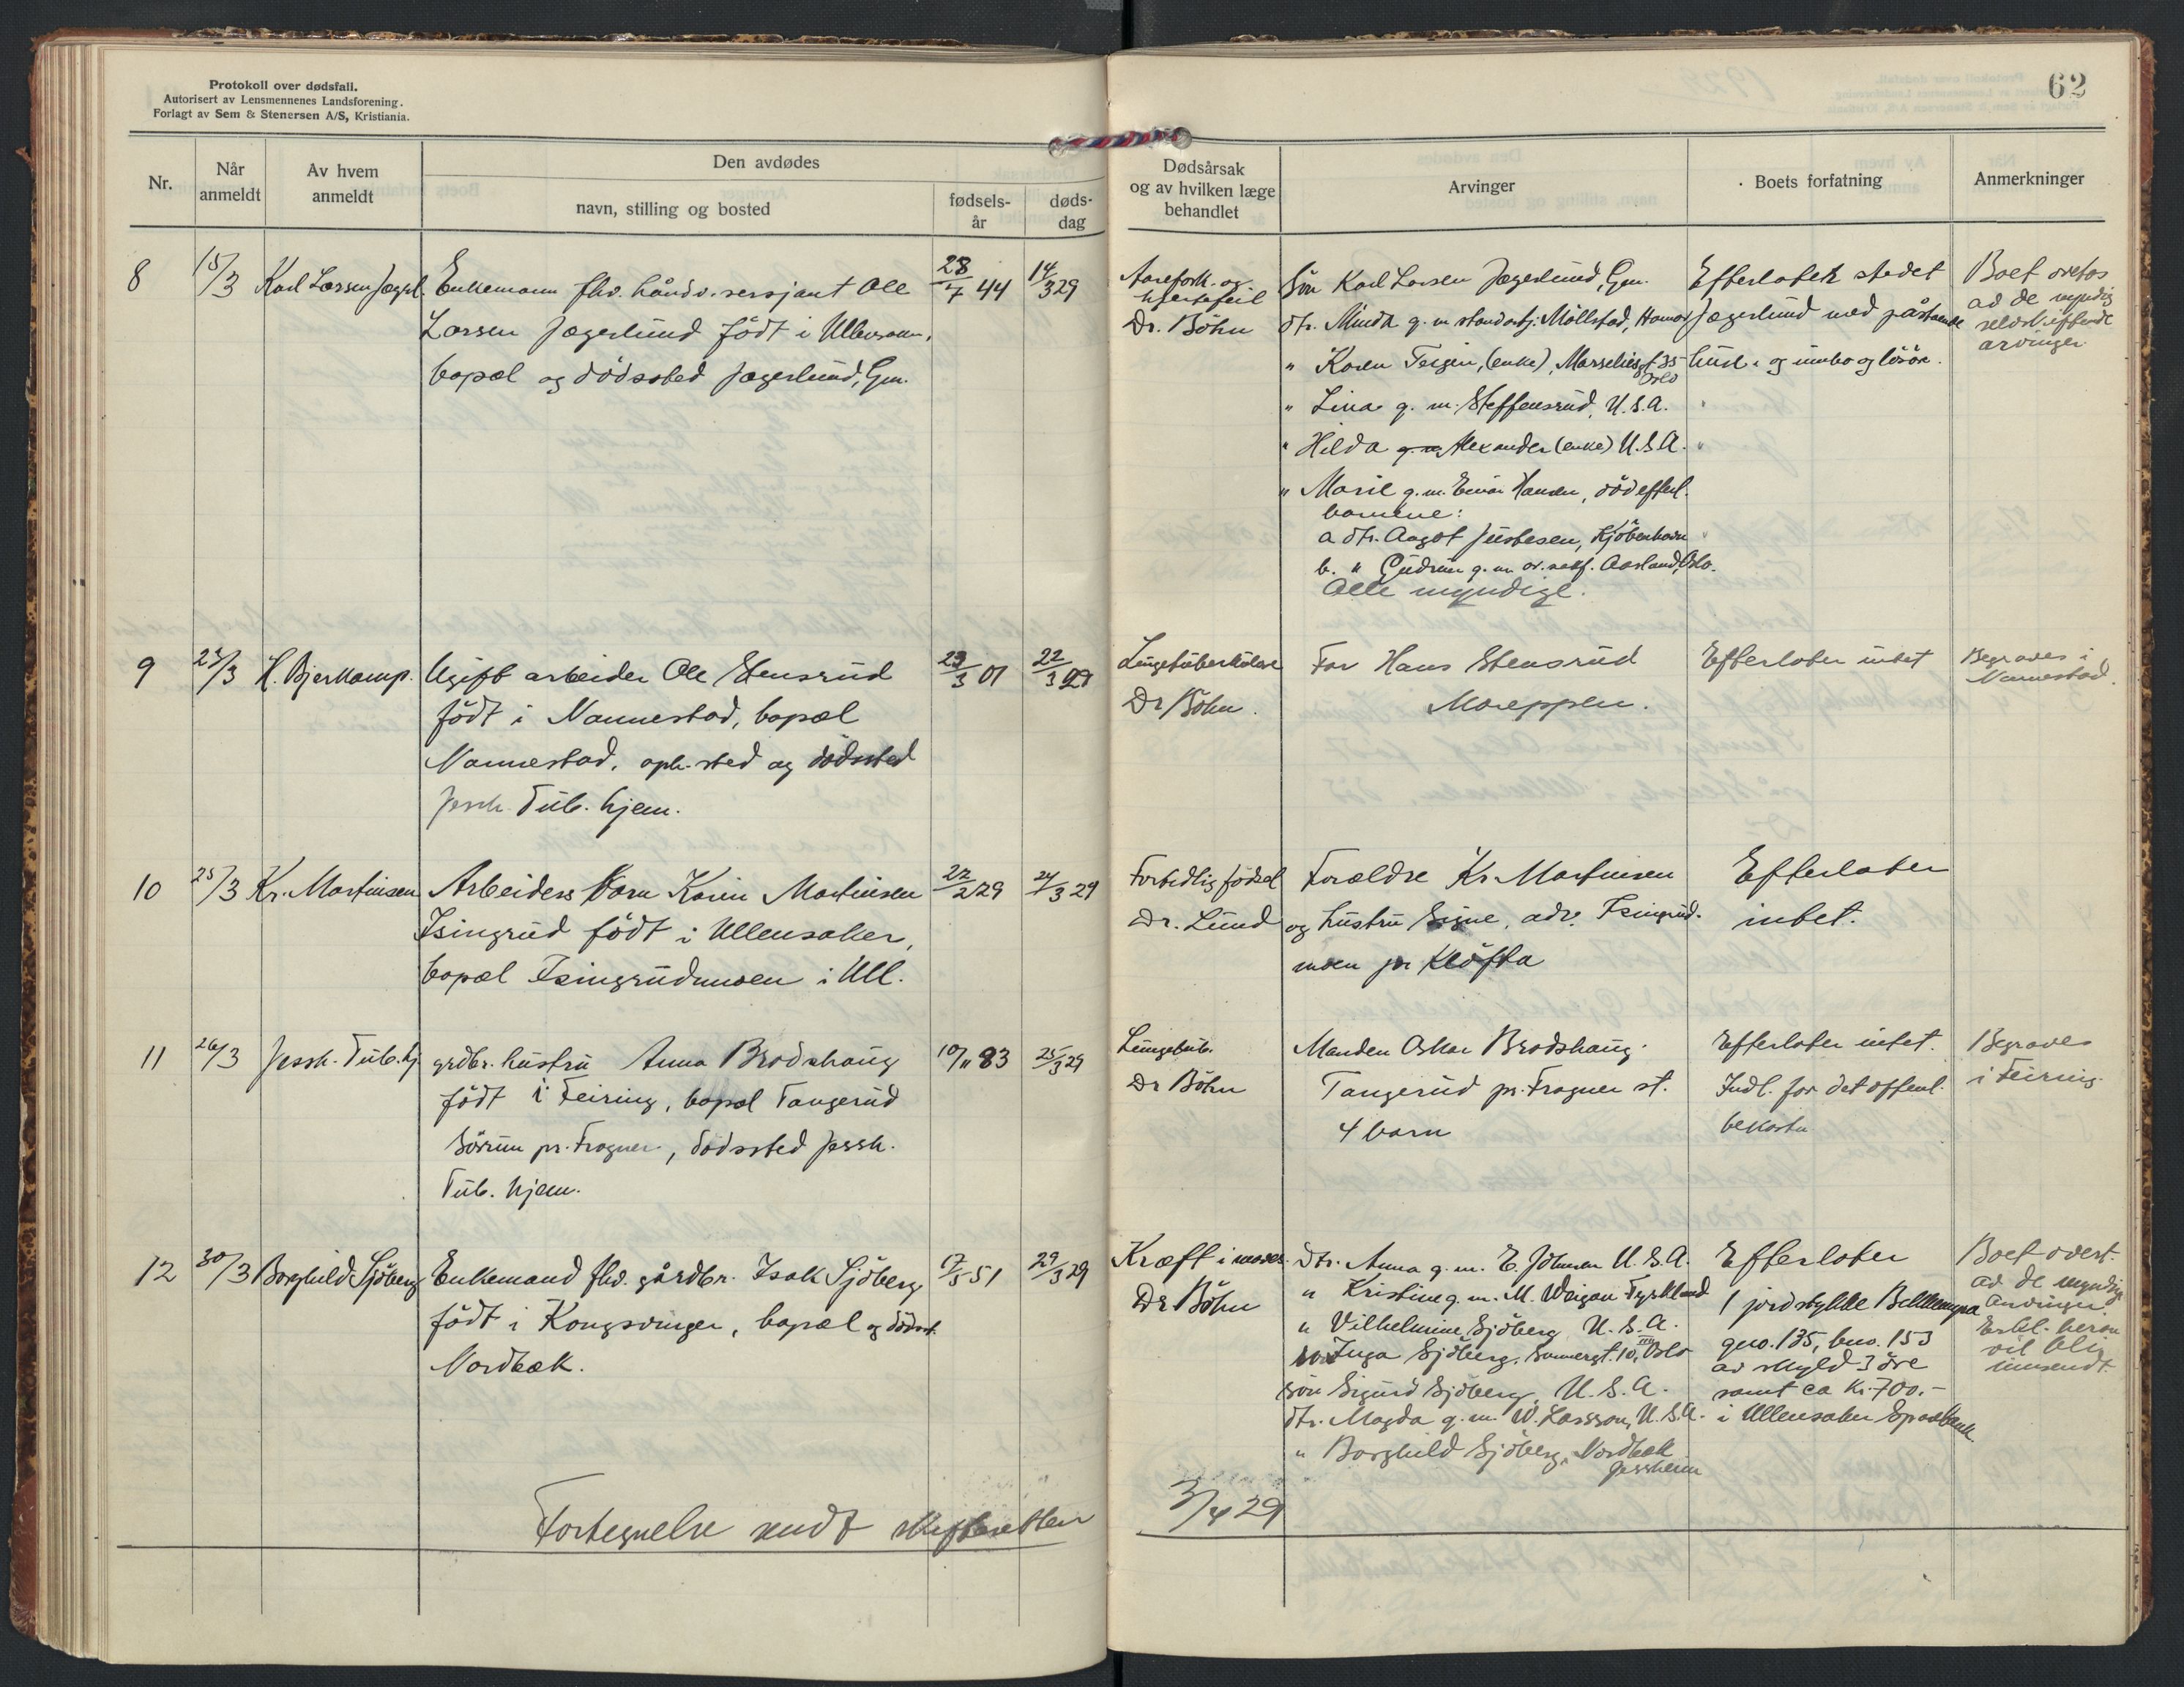 Protokoll over dødsfall.
Autorisert av Lensmennenes Landsforening.
Forlagt av Sem & Stenersen A/S, Kristiania.
62
Nr.
Når anmeldt
Av hvem anmeldt
Den avdødes
navn, stilling og bosted
fødsels-år
døds-dag
Dødsårsak og av hvilken læge behandlet
Arvinger
Boets forfatning
Anmerkninger
8
15/3
Karl Larsen Jægerl.
Enkemann fhv. håndv. sersjant Ole
Larsen Jægerlund födt i Ullensaker,
bopæl og dödssted Jægerlund, Gm.
28/7 44
14/3 29
Aarefork. og
hjertefeil
Dr. Böhn
Sön Karl Larsen Jægerlund, Gm.
dtr. Minda g. m Möllstad, Hamar
" Karen Teigen, (enke), Marseliesgt 35
Oslo
" Lina g. m. Steffensrud, U.S.A.
" Hilda Alexander (enke) U.S.A.
" Marie g. m. Einar Hansen, död efterl.
barnene:
a dtr. Aagot Justesen, Kjöbenhavn
b. " Gudrun g. m Aasland, Oslo.
Alle myndige.
Efterlater stedet
Jægerlund med påstaaende
hus. og innbo og lösöre.
Boet overtas
av de myndig
selvskiftende
arvinger
9
23/3
H. Bjerkamp.
Ugift arbeider Ole Stensrud
födt i Nannestad, bopæl
Nannestad, oph. sted og dödssted
Jessh. Tub. hjem.
23/3 01
22/3 29
Lungetuberkulose
Dr Böhn.
Far Hans Stensrud
Moreppen.
Efterlater intet
Begraves i
Nannestad.
10
25/3
Kr. Martinsen
Arbeiders barn Karin Martinsen
Isingrud födt i Ullensaker,
bopæl Isingrudmoen i Ull.
22/2 29
24/3 29
Forhedlig födsel
Dr. Lund
Forældre Kr. Martinsen
og hustru Signe, adr. Isingrud-
moen pr Klöfta
Efterlater
intet.
11
26/3
Jessh. Tub. hj
grdbr. hustru Anna Brodshaug
födt i Feiring, bopæl Tangerud
Sörum pr. Frogner, dödssted Jessh.
Tub. hjem.
10/11 83
25/3 29
Lungetub.
Dr Böhn
Manden Oskar Brodshaug
Tangerud pr. Frogner st.
4 barn
Efterlater intet.
Indl. for det offentl.
bekostn
Begraves
i Feiring.
12
30/3
Borghild Sjöberg
Enkemand fhv. gårdbr. Isak Sjöberg
födt i Kongsvinger, bopæl og dödsst.
Nordbæk.
17/5 51
29/3 29
Kræft i maven
Dr Böhn
Dtr. Anna g. m. E. Johnsen U.S.A.
" Kristine g. m. M. Weigan Tyskland
" Vilhelmine Sjöberg U.S.A.
Inga Sjöberg, Sannergt. 10, Oslo
Sön Sigurd Sjöberg, U.S.A.
dtr. Magda g. m. W. Larsson, U.S.A.
" Borghild Sjöberg, Nordbæk
Jessheim
Efterlater
1 jordstykke
gno. 135, bno. 153
av skyld 3 öre
samt ca Kr. 700.-
i Ullensaker Sparebank
Boet overt.
av de myndige
Arvinger.
Erkl. herom
vil bli
innsendt.
Fortegnelse sendt skifteretten
3/4 29